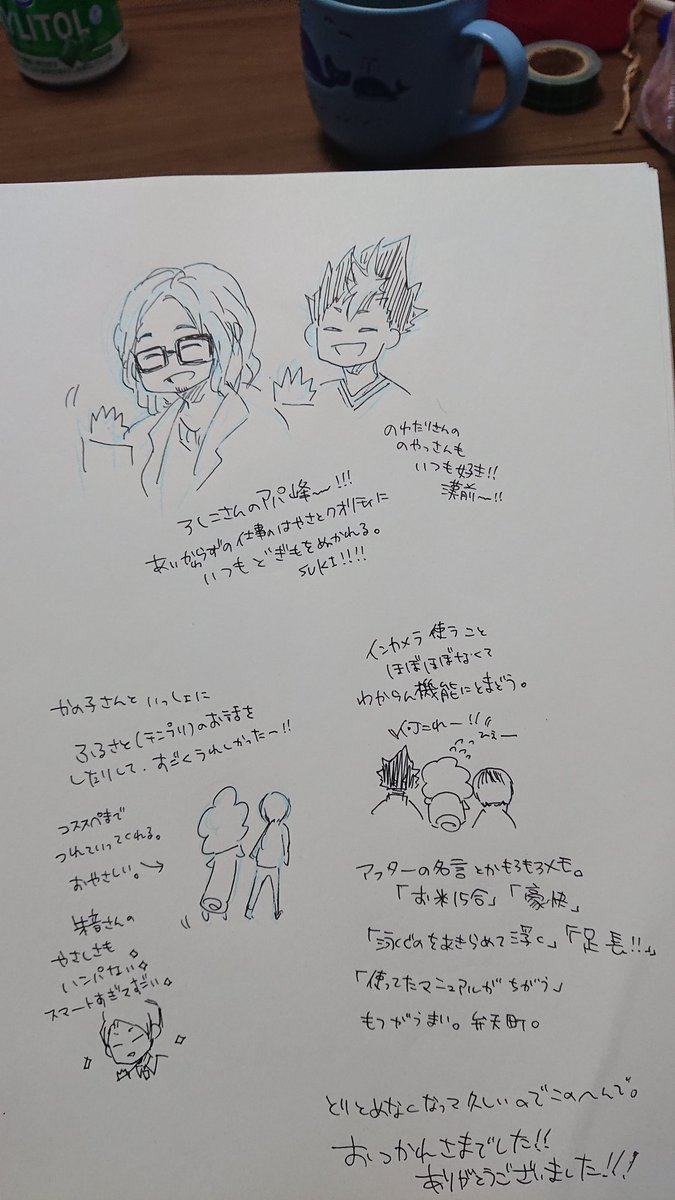 XYLITOL
のわたりさんの
のやっさんも
いつも好き!!
漢前〜!!
ろしこさんのアパ峰〜!!!
あいかわらずの仕事のはやさとクオリティに
いつもどぎもをぬかれる。
SUKI!!!!
かの子さんといっしょに
ふるさと(テニプリ)のお話を
したりして、すごくうれしかった〜!!
コススペまで
つれていってくれる。
おやさしい。→
朱音さんの
やさしさも
ハンパない
スマートすぎてすごい
インカメラ使うこと
ほぼほぼなくて
わからん機能にとまどう。
何これー!!
アフターの名言とかもろもろメモ。
「お米15合」「豪快」
「泳ぐのをあきらめて浮く」「足長!!」
「使ってたマニュアルがちがう」
もつがうまい。弁天町。
とりとめなくなって久しいのでこのへんで。
おつかれさまでした!!
ありがとうございました!!!